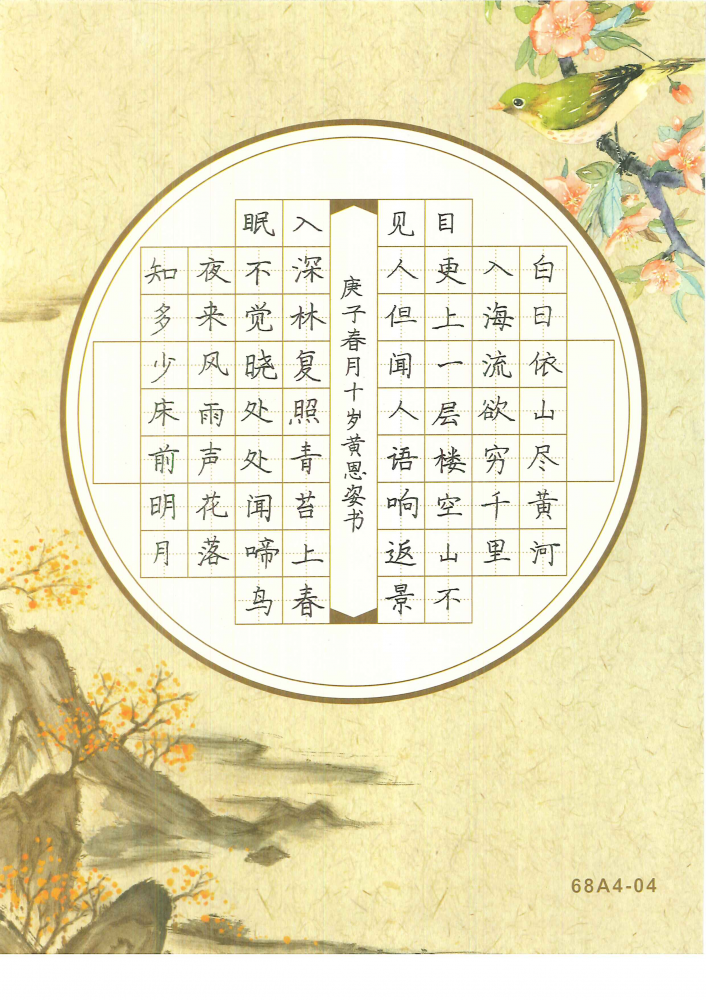 白日依山尽黄河
入海流欲穷千里
目更上一层楼空山不
见人但闻人语响返景
庚子春月十岁黄恩姿书
入深林复照青苔上春
眠不觉晓处处闻啼鸟
夜来风雨声花落
知多少床前明月
68A4-04